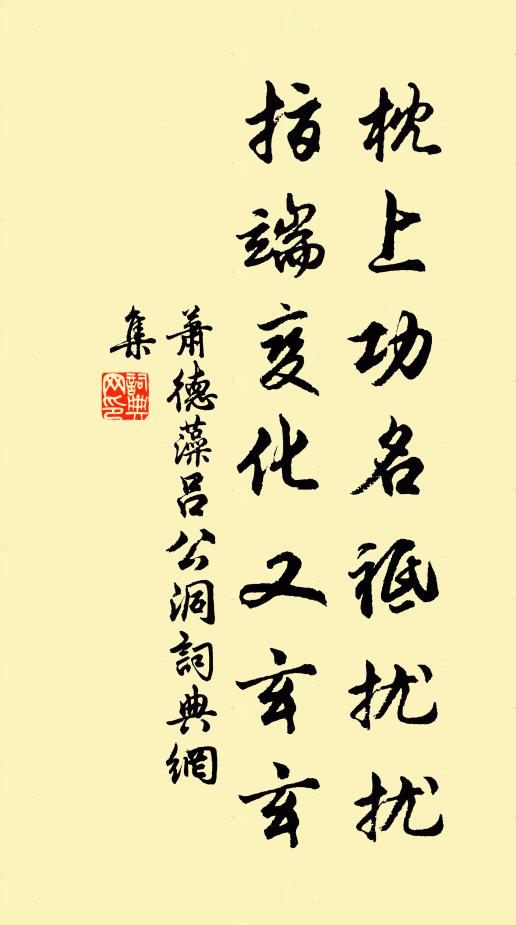 枕上功名祗扰扰
指端变化又玄玄
萧德藻吕公洞詞典網
集
詞典网印